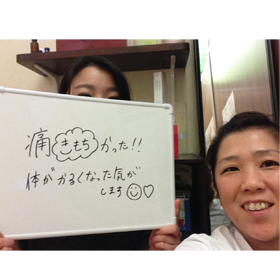 痛きもちかった!!
体がかるくなった気が
します☺♡